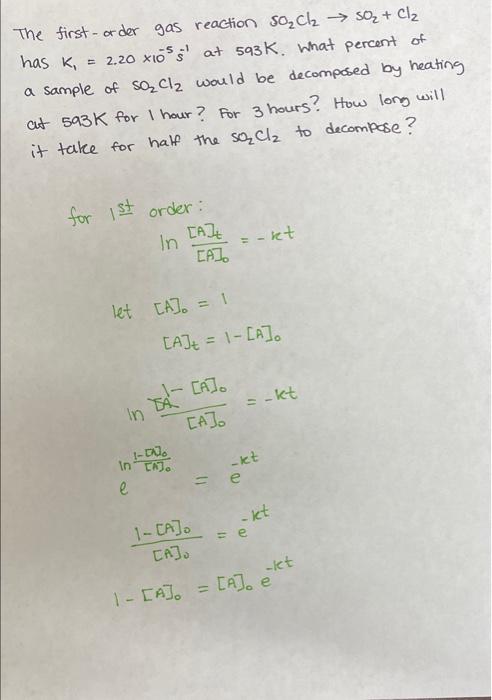 The first-order gas reaction SO₂Cl₂ → SO₂ + Cl₂
has K₁ = 2.20 x10⁻⁵ s⁻¹ at 593K. What percent of
a sample of SO₂Cl₂ would be decomposed by heating
at 593K for 1 hour? For 3 hours? How long will
it take for half the SO₂Cl₂ to decompose?
for 1st order:
ln [A]t / [A]₀ = -kt
let [A]₀ = 1
[A]t = 1-[A]₀
ln 1-[A]₀ / [A]₀ = -kt
e^(ln 1-[A]₀ / [A]₀) = e^-kt
1-[A]₀ / [A]₀ = e^-kt
1-[A]₀ = [A]₀ e^-kt